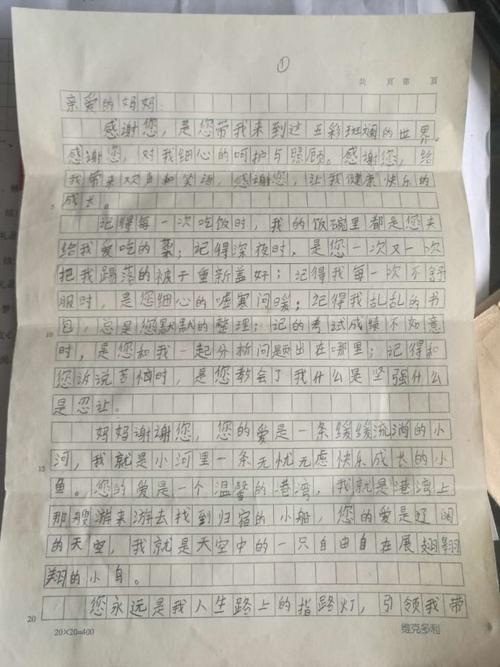 ①
共 页 第 页
亲爱的妈妈:
感谢您,是您带我来到这五彩斑斓的世界。
感谢您,对我细心的呵护与照顾。感谢您,给
我带来欢声和笑语,感谢您,让我健康快乐的
成长。
5
记得每一次吃饭时,我的饭碗里都是您夹
给我爱吃的菜;记得深夜时,是您一次又一次
把我踢落的被子重新盖好;记得我每一次不舒
服时,是您细心的嘘寒问暖;记得我乱乱的书
10
是您默默的整理;记的考试成绩不如意
时,是您和我一起分析问题出在哪里;记得和
您诉说苦恼时,是您教会了我什么是坚强什么
是忍让。
妈妈谢谢您,您的爱是一条缓缓流淌的小
15
河,我就是小河里一条无忧无虑快乐成长的小
鱼。您的爱是一个温馨的港湾,我就是港湾上
那艘游来游去找到归宿的小船,您的爱是辽阔
的天空,我就是天空中的一只自由自在展翅翱
翔的小鸟。
20
您永远是我人生路上的指路灯,引领我带
20×20=400
维克多利